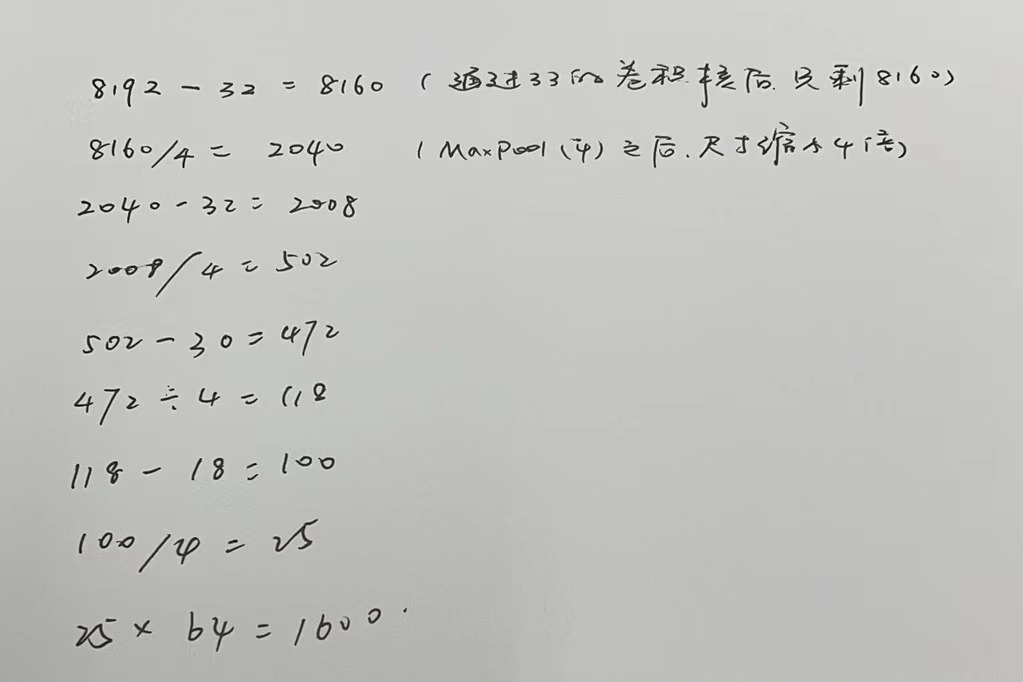 8192 - 32 = 8160 (通过33的卷积核后.只剩8160)
8160/4 = 2040 (MaxPool(4)之后.尺寸缩小4倍)
2040 - 32 = 2008
2008/4 = 502
502 - 30 = 472
472 ÷ 4 = 118
118 - 18 = 100
100/4 = 25
25 × 64 = 1600.